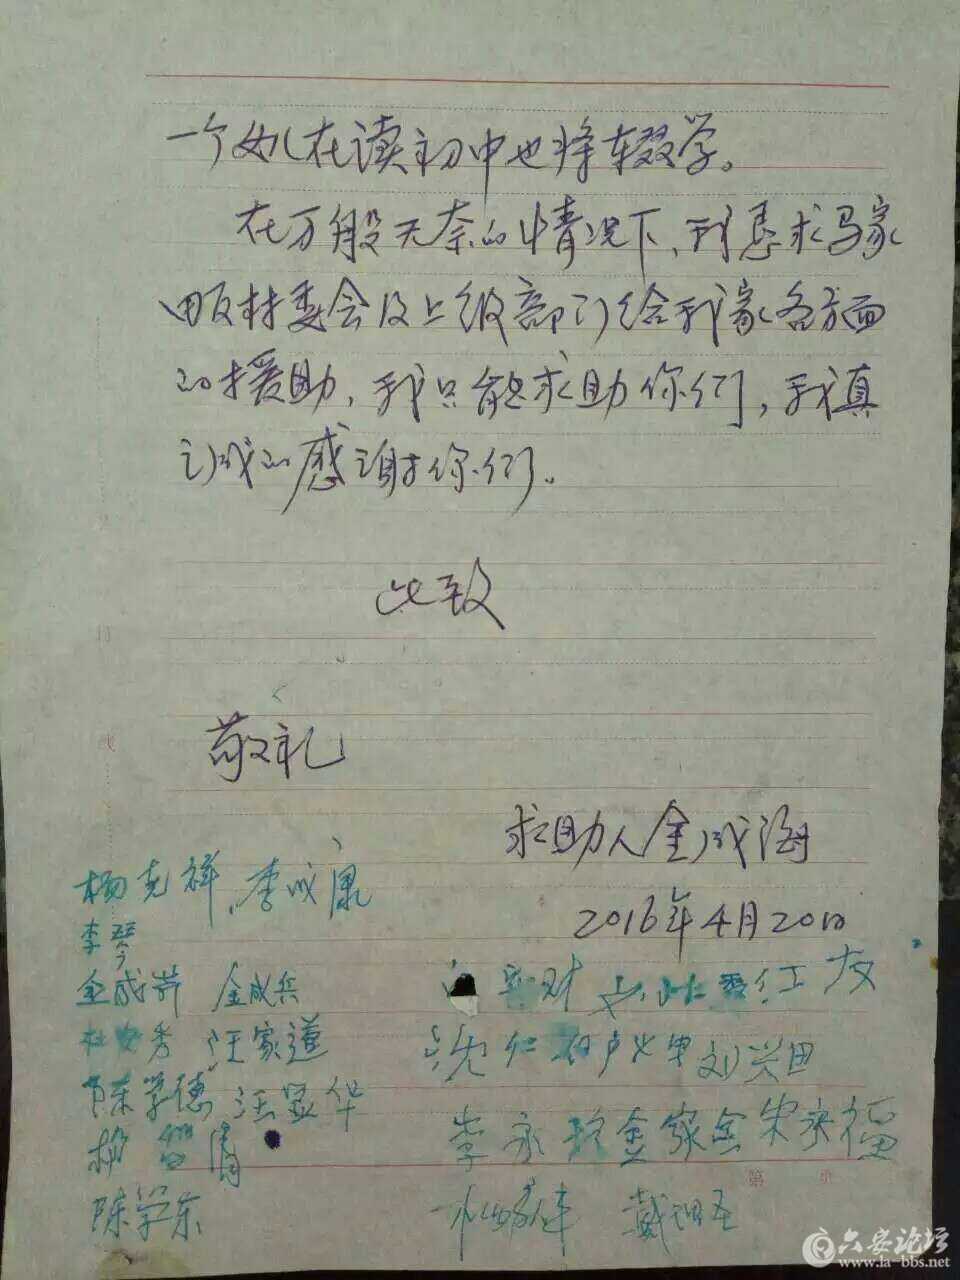 一个女儿在读初中也将辍学。
在万般无奈的情况下,到恳求马家
畈村委会及上级部门给我家各方面
的援助,我只能求助你们,我真
诚的感谢你们。
此致
敬礼
求助人金成海
2016年4月20日
杨克祥 李成康
李琴
金成荣 金成兵
杜安秀 汪家道
陈学德 汪显华
杨 清
陈学东
财 红友
沈仁 刘兴田
李永 金家金宋永福
戴
第 页
六安论坛
www.la-bbs.net